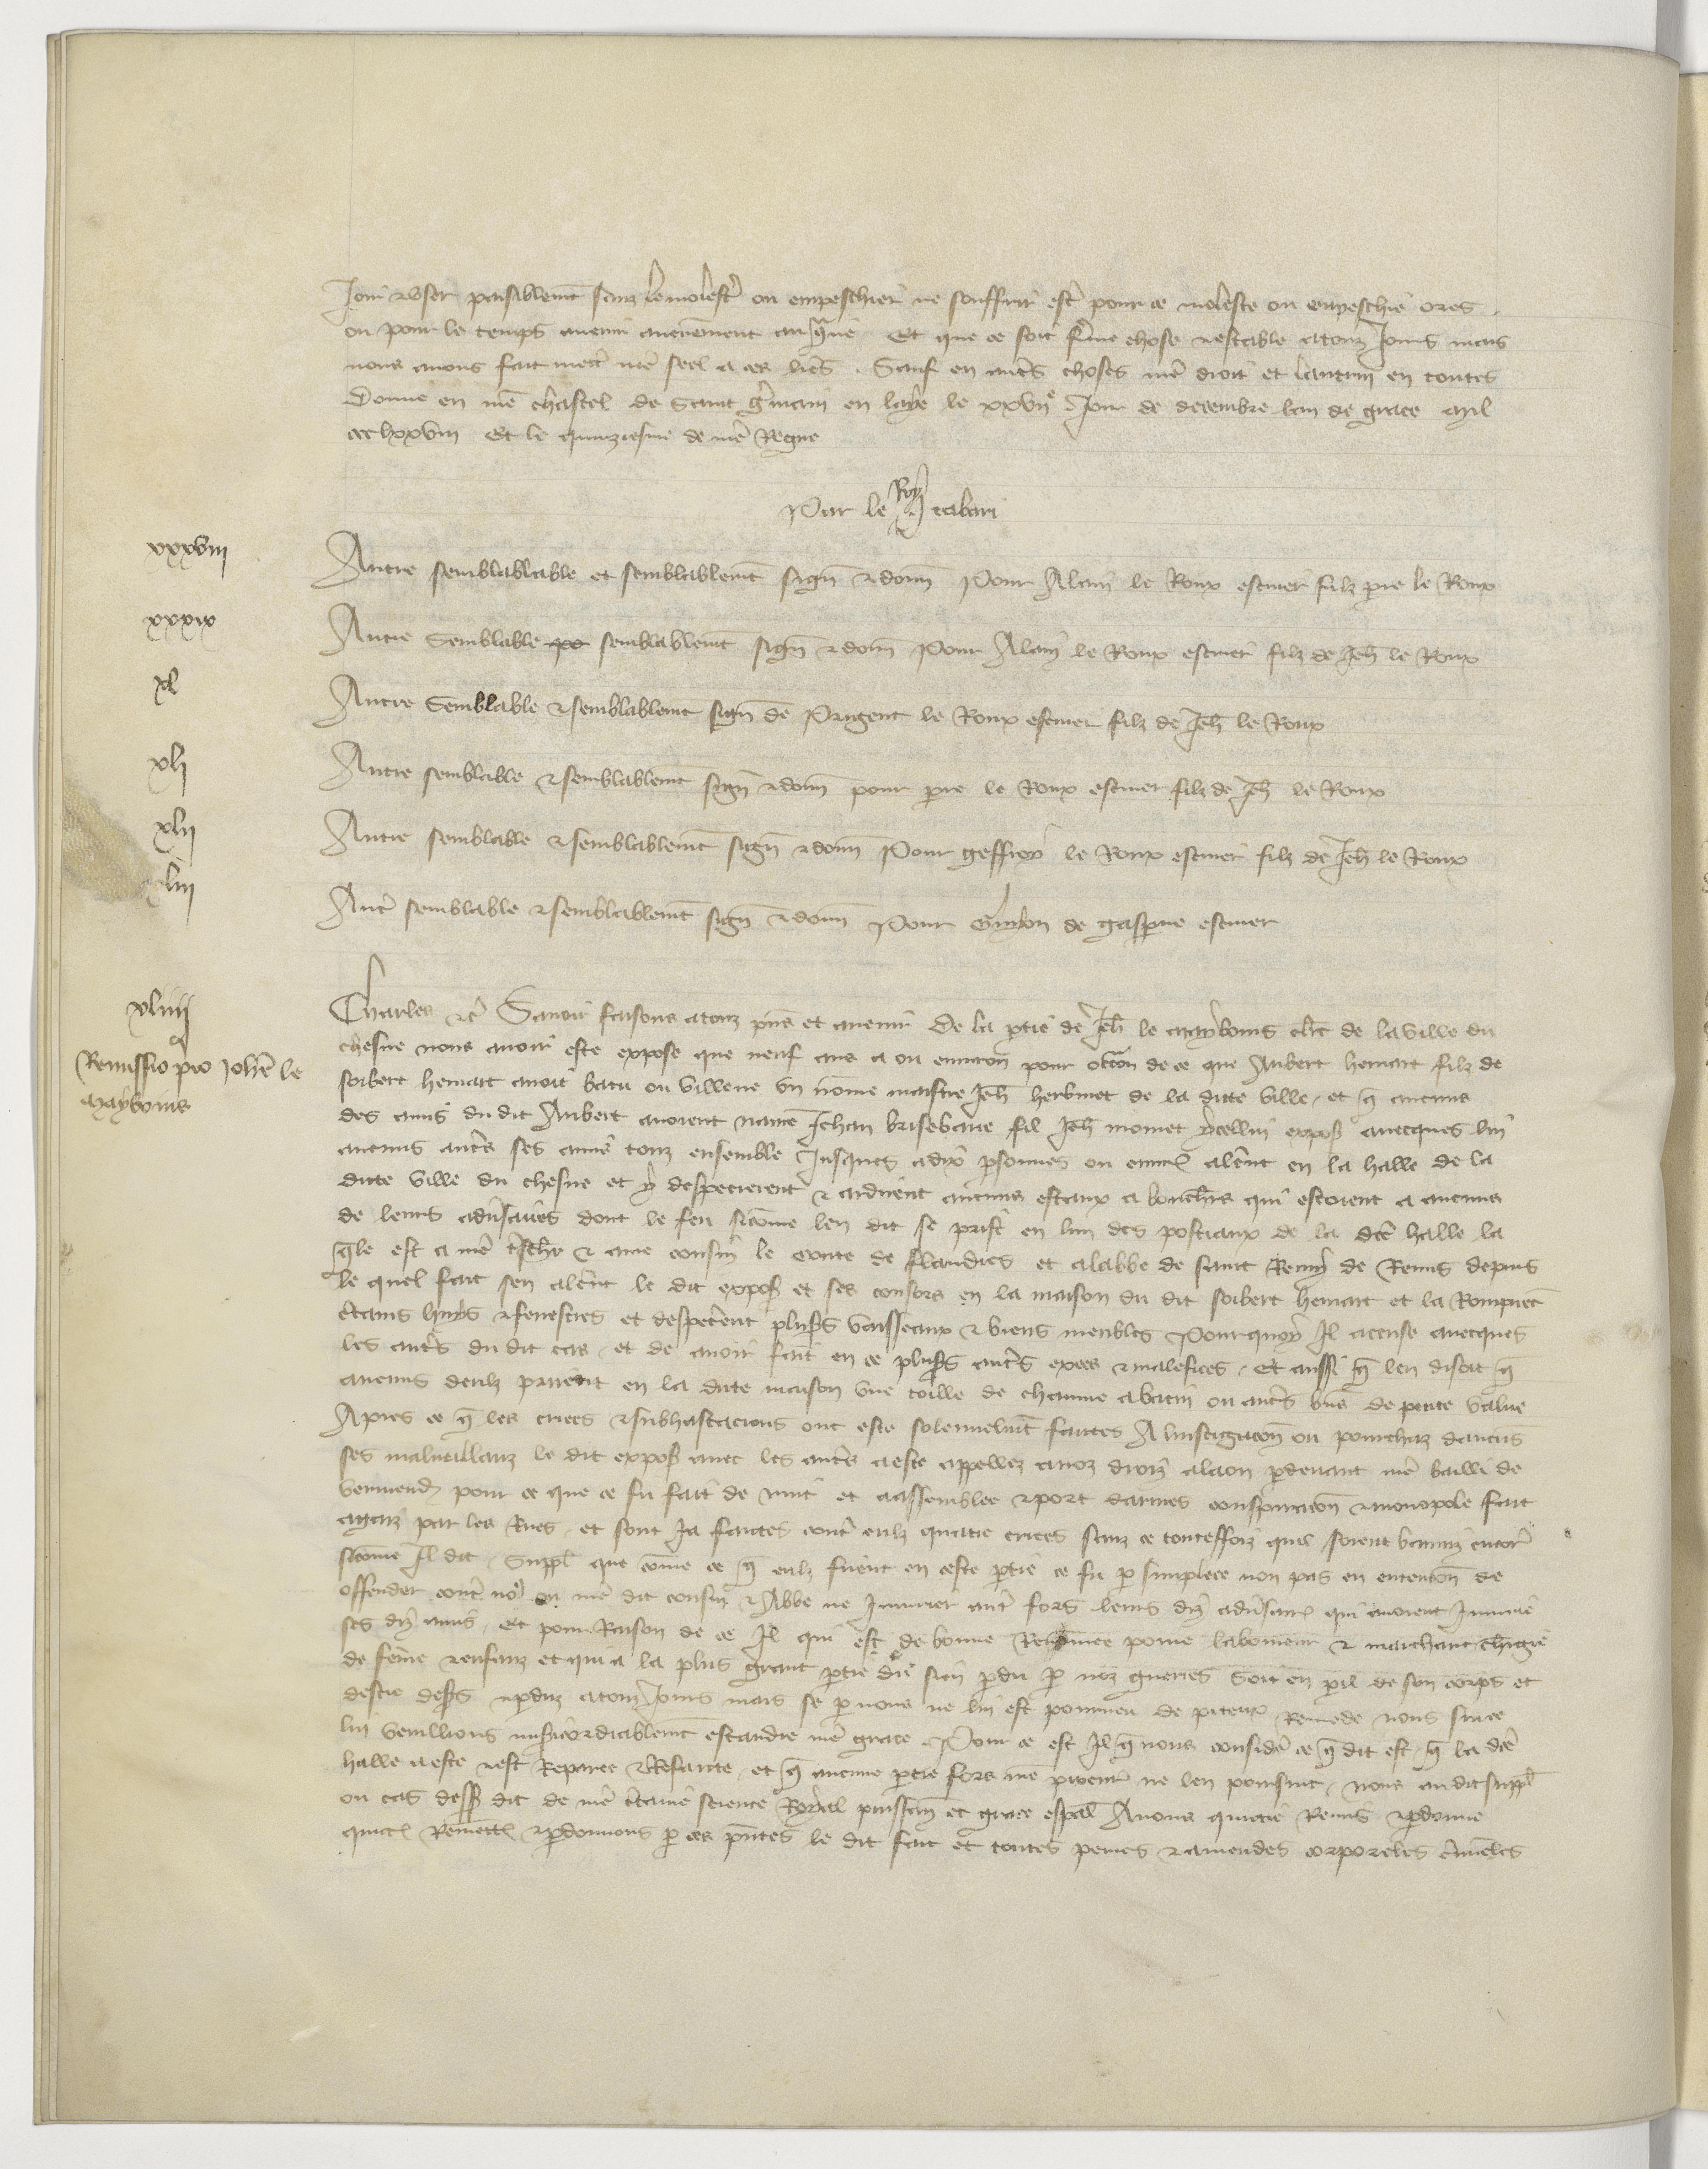 Joir et user paisiblemt sanz le molester ou empeschier ne souffrir estre pour ce moleste ou empeschie ores
ou pour le temps avenir aucunement au contraire Et que ce soit ferme chose et estable a touz jours mais
nous avons fait mectre nre seel a ces lres. Sauf en autres choses nre droit et lautrui en toutes
Donne en nre chastel de Saint Germain en laye le xxvije Jour de decembre lan de grace mil
ccclxxviii Et le quinziesme de nre Regne
Par le Roy tabari
xxxviii
Autre semblablable et semblablemt sign et donn Pour Alain le Roux escuier filz pre le Roux
xxxix
Autre Semblable semblablemt sign et donn Pour Alain le Roux escuier filz de Jeh le Roux
xl
Autre Semblable et semblablemt sign de Prigent le Roux escuier filz de Jeh le Roux
xlj
Autre semblable et semblablemt sign et donn pour pre le Roux escuier filz de Jeh le Roux
xlij
Autre semblable et semblablemt sign et donn Pour geffroy le Roux escuier filz de Jeh le Roux
xliij
Autre semblable et semblablemt sign et donn Pour Guyon de escuier
xliiij
Remissio pro Johe le
Charles etc Savoir faisons a touz pns et avenir De la ptie de Jeh le clerc de la ville du
chesne nous avoir este expose que neuf ans a ou environ pour occon de ce que Aubert hemart filz de
soibert hemart avoit batu ou villene un nomme maistre Jeh herbinet de la ditte ville, et q aucuns
des amis du dit Aubert avoient navre Jehan brisebarre fil Jeh et icellui expos avecques lui
aucuns autres ses amis touz ensemble Jusques a dix psonnes ou environ alerent en la halle de la
ditte ville du chesne et y despecierent et ardirent aucuns estaux a bouchers qui estoient a aucuns
de leurs adversaires dont le feu sicomme len dit se prist en lun des postiaux de la dce halle la
qle est a nre treschr et ame cousin le conte de flandres et a labbe de saint Remy de Reins depuis
le quel fait sen alerent le dit expos et ses consors en la maison du dit soibert hemart et la rompirent
certains huys et fenestres et despecerent plusrs vaisseaux et biens meubles Pourquoy Il accuse avecques
les autres du dit cas, et de avoir fait en ce plusrs autres exces et malefices. Et aussi q len disoit q
aucuns deulz prirent en la dite maison une toille de chanvre a batin ou autres biens de petite value
Apres ce q les criees et subhastacions ont este solennelmt faittes A linstigacon ou pourchaz daucuns
ses malveullanz le dit expos avec les autres a este appellez a noz droiz a laon pdevant nre bailli de
vermend pour ce que ce fu fait de nuit et a assemblee et port darmes conspiracion et monopole fait
agait par les rues, et sont Ja faittes contre eulz quatre criees sanz ce touteffoiz quil soient banniz encore
sicomme Il dit. Suppl que comme ce q eulz firent en ceste ptie ce fu p simplece non pas en entencion de
offender contre nous ou nre dit cousin et Abbe ne Injurier autre fors leurs diz adversaires qui avoient Injurie
ses diz amis. Et pour Raison de ce Il qui est de bonne Renommee povre laboureur et marchant chargie
de femme et enfanz et qui a la plus grant ptie du sien pdu p noz guerres soit en pil de son corps et
destre desers et pduz a touz Jours mais se p nous ne lui est pourveu de piteux Remede nous sur ce
lui veullions misericordiablemt estandre nre grace. Pour ce est Il q nous considere ce q dit est, q la dce
halle a este et est Reparee et Refaitte, et q aucune ptie fors nre procureur ne len poursuit, nous au dit suppl
ou cas dessus dit de nre certaine science Royal puissance et grace espal Avons quictie Remis et pdonne
quictons Remectons et pdonnons p ces pntes le dit fait et toutes peines et amendes corporeles criminelles